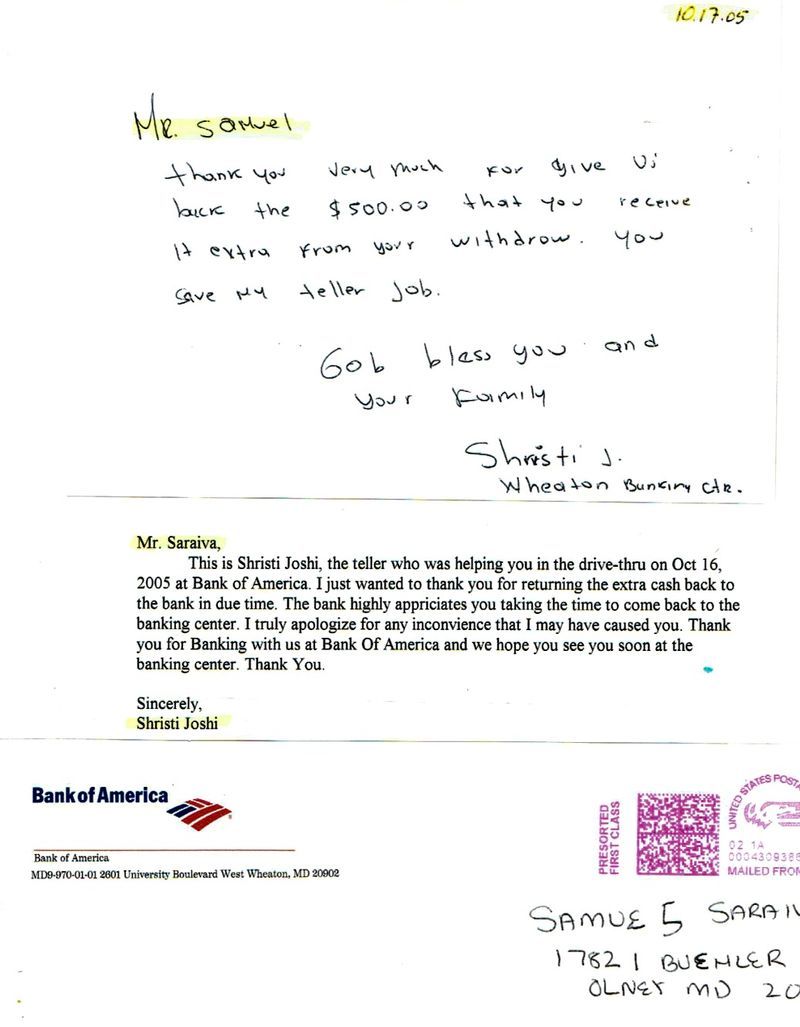 10.17.05
Mr. Samuel
thank you very much for give us
back the $500.00 that you receive
it extra from your withdrow. you
save my teller job.
Gob bless you and
your family
Shristi J.
Wheaton Banking Ctr.
Mr. Saraiva,
This is Shristi Joshi, the teller who was helping you in the drive-thru on Oct 16,
2005 at Bank of America. I just wanted to thank you for returning the extra cash back to
the bank in due time. The bank highly appriciates you taking the time to come back to the
banking center. I truly apologize for any inconvience that I may have caused you. Thank
you for Banking with us at Bank Of America and we hope you see you soon at the
banking center. Thank You.
Sincerely,
Shristi Joshi
Bank of America
Bank of America
MD9-970-01-01 2601 University Boulevard West Wheaton, MD 20902
PRESORTED
FIRST CLASS
UNITED STATES POSTA
02 1A
MAILED FROM
SAMUE S SARAIV
17821 BUEHLER
OLNEY MD 20